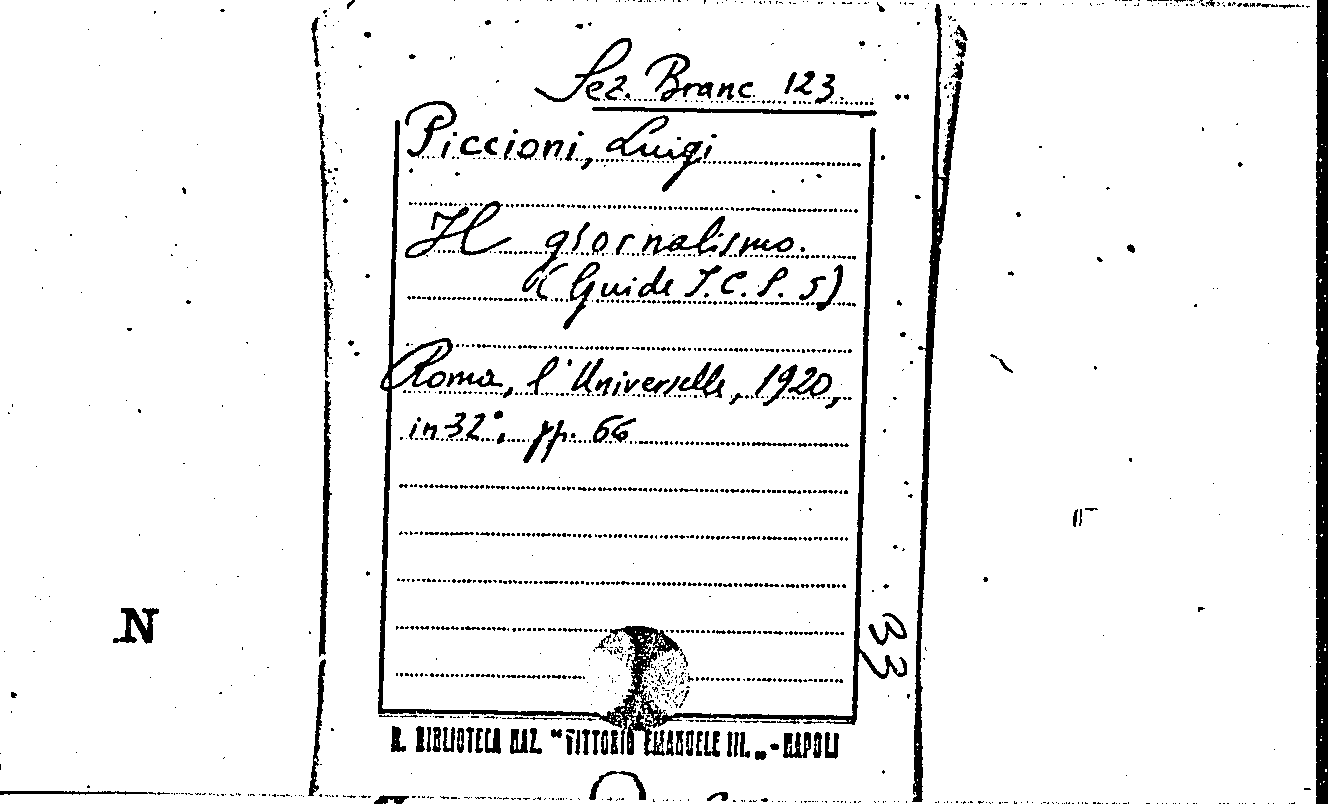 Sez. Branc 123
Piccioni, Luigi
Il giornalismo.
(Guide I.C.S. 5)
Roma, l'Universelle, 1920,
in 32°, pp. 66
N
33
R. BIBLIOTECA NAZ. "VITTORIO EMANUELE III. „ - NAPOLI